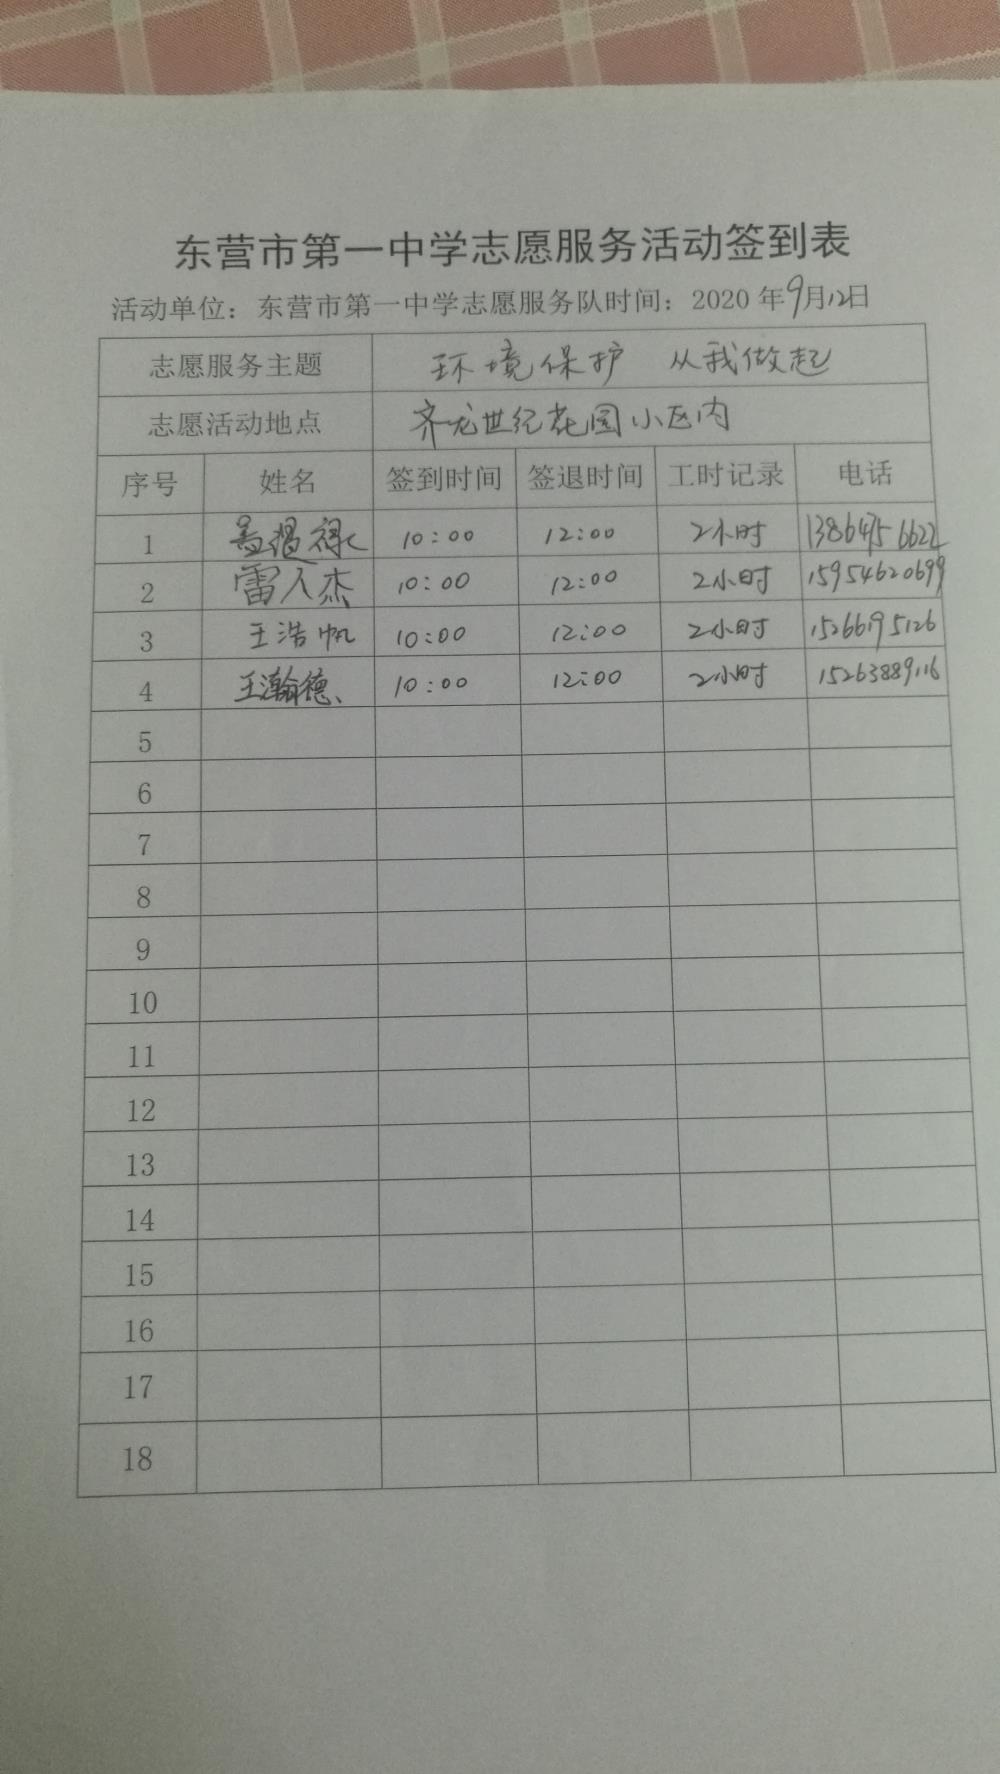 东营市第一中学志愿服务活动签到表
活动单位：东营市第一中学志愿服务队时间：2020年9月12日
志愿服务主题 环境保护 从我做起
志愿活动地点 齐龙世纪花园小区内
序号 姓名 签到时间 签退时间 工时记录 电话
1 10:00 12:00 2小时
2 雷入杰 10:00 12:00 2小时 15954620699
3 王浩帆 10:00 12:00 2小时 15266195126
4 王瀚德、 10:00 12:00 2小时 15263889116
5
6
7
8
9
10
11
12
13
14
15
16
17
18